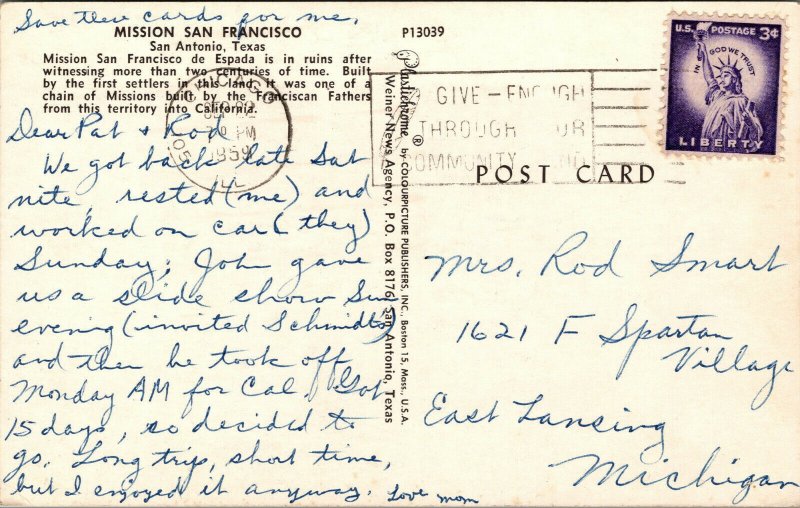 Save these cards for me.
MISSION SAN FRANCISCO
San Antonio, Texas
Mission San Francisco de Espada is in ruins after
witnessing more than two centuries of time. Built
by the first settlers in this land. It was one of a
chain of Missions built by the Franciscan Fathers
from this territory into California.
Dear Pat & Rod
We got back late Sat
nite, rested (me) and
worked on car (they)
Sunday; John gave
us a slide show Sun
evening (invited Schmidts)
and then he took off
Monday AM for Cal. Got
15 days, so decided to
go. Long trip, short time,
but I enjoyed it anyway. Love mom
P13039
Plastichrome ® by COLOURPICTURE PUBLISHERS, INC., Boston 15, Mass., U.S.A.
Weiner News Agency, P.O. Box 8176, San Antonio, Texas
PM
1959
14
GIVE - ENOUGH
THROUGH YOUR
COMMUNITY FUND
U.S. POSTAGE 3¢
IN GOD WE TRUST
LIBERTY
POST CARD
Mrs. Rod Smart
1621 F Spartan
Village
East Lansing
Michigan